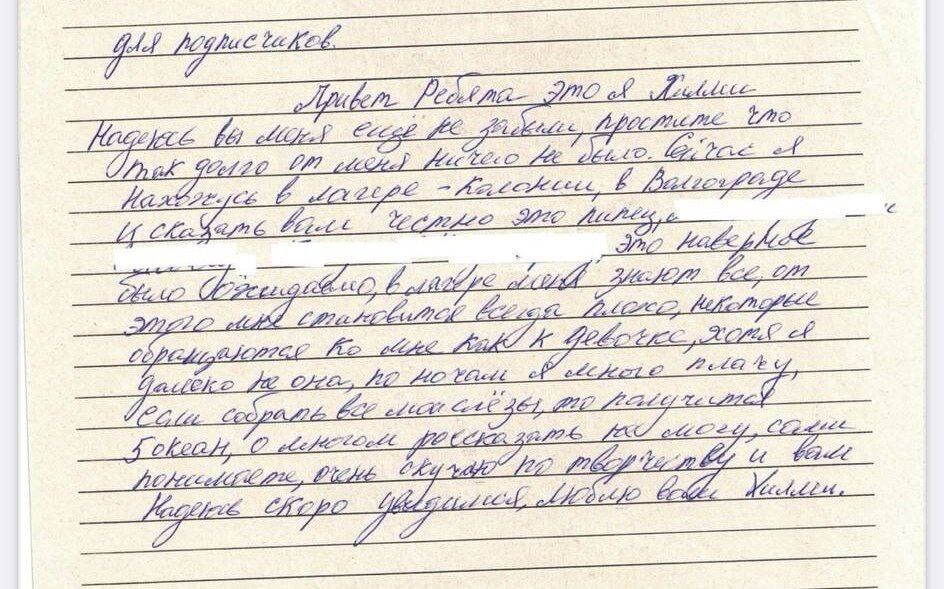 для подписчиков.
Привет Ребята это я Хилми
Надеюсь вы меня ещё не забыли, простите что
так долго от меня ничего не было. Сейчас я
нахожусь в лагере - Колонии, в Волгограде
и сказать вам честно это пипец,
это наверное
было ожидаемо, в лагере меня знают все, от
этого мне становится всегда плохо, некоторые
обращаются ко мне как к девочке, хотя я
далеко не она, по ночам я много плачу,
если собрать все мои слёзы, то получится
5 океан, о многом рассказать не могу, сами
понимаете, очень скучаю по творчеству и вам
Надеюсь скоро увидимся, люблю вас Хилми.